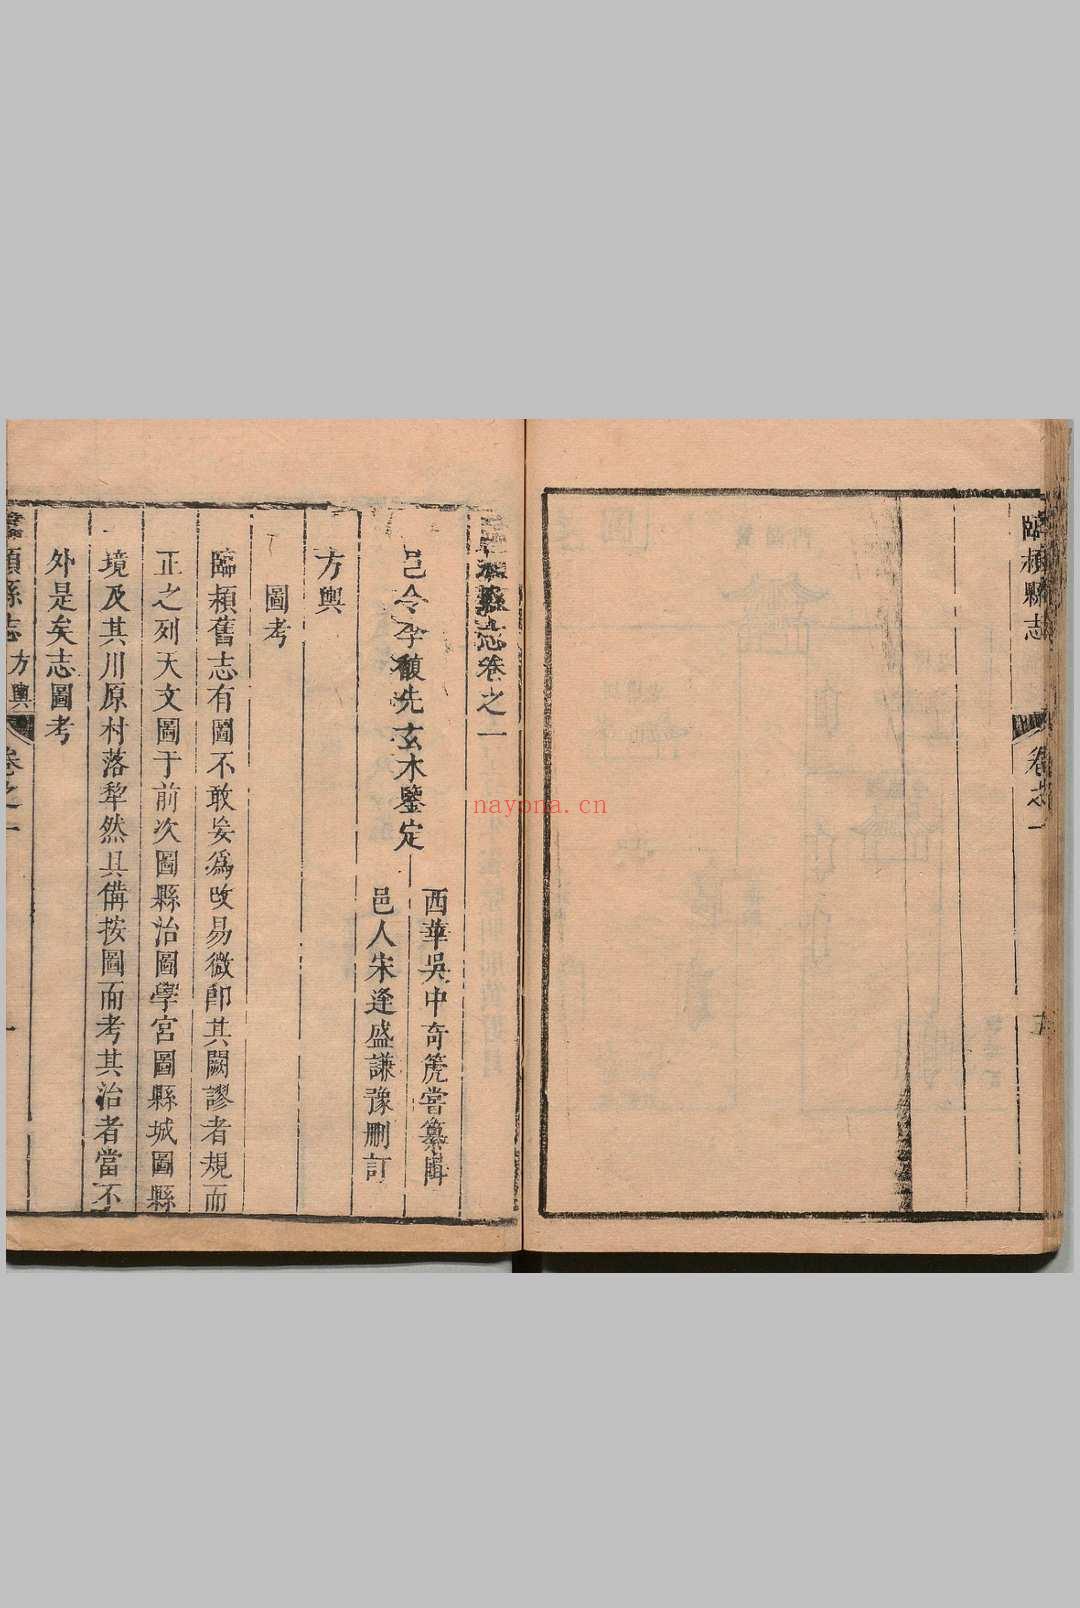 臨潁縣志
卷之一
縣志卷之一
邑令李馥先玄木鑒定
西華吳中奇箎嘗纂輯
邑人宋逢盛謙豫刪訂
方輿
圖考
臨潁舊志有圖不敢妄爲改易微即其闕謬者規而
正之列天文圖于前次圖縣治圖學宮圖縣城圖縣
境及其川原村落犂然具備按圖而考其治者當不
外是矣志圖考
潁縣志
方輿
卷之一
一
nayona.cn